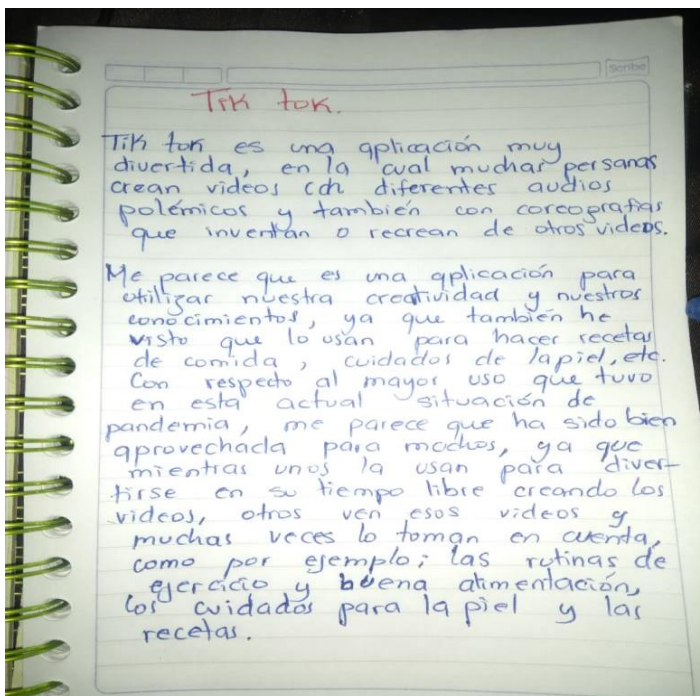 Scribe
Tik tok.
Tik tok es una aplicación muy
divertida, en la cual muchas personas
crean videos con diferentes audios
polémicos y también con coreografias
que inventan o recrean de otros videos.
Me parece que es una aplicación para
utilizar nuestra creatividad y nuestros
conocimientos, ya que también he
visto que lo usan para hacer recetas
de comida, cuidados de la piel, etc.
Con respecto al mayor uso que tuvo
en esta actual situación de
pandemia, me parece que ha sido bien
aprovechada para muchos, ya que
mientras unos la usan para diver-
tirse en su tiempo libre creando los
videos, otros ven esos videos y
muchas veces lo toman en cuenta,
como por ejemplo; las rutinas de
ejercicio y buena alimentación,
los cuidados para la piel y las
recetas.